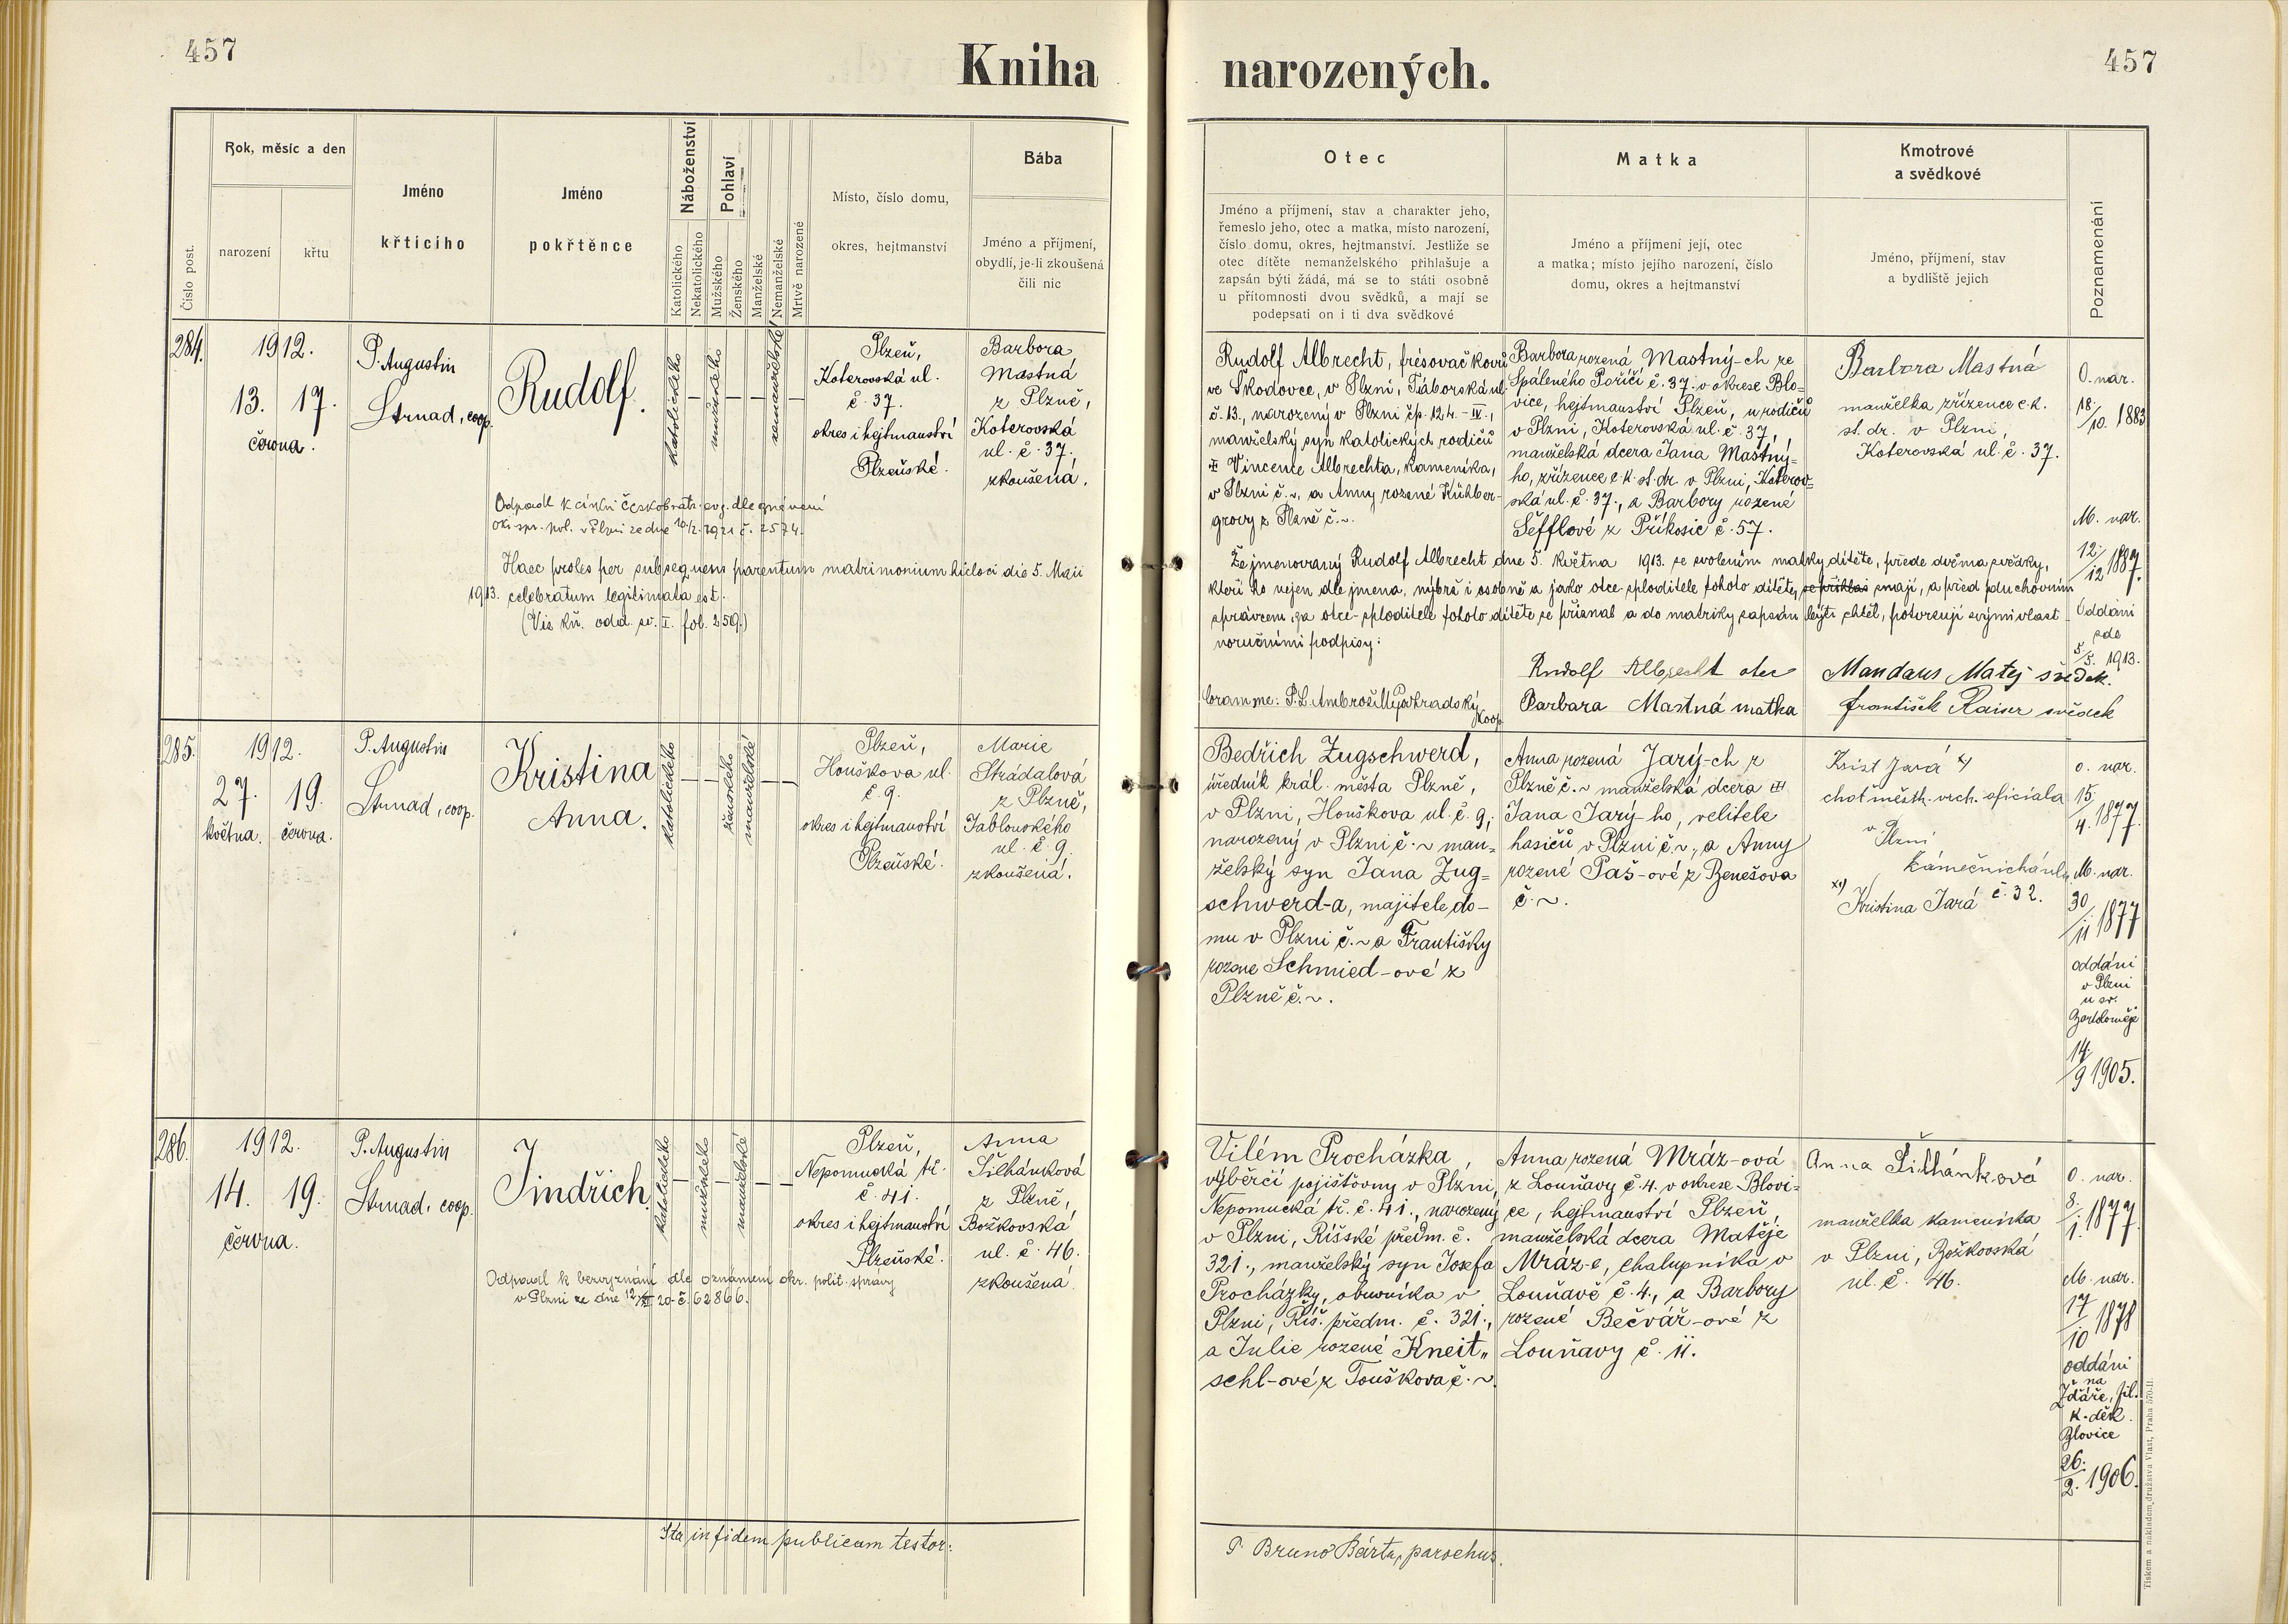 457
Kniha narozených.
457
Číslo post.
Rok, měsíc a den
narození
křtu
Jméno
křticího
Jméno
pokřtěnce
Náboženství
Katolického
Nekatolického
Pohlaví
Mužského
Ženského
Manželské
Nemanželské
Mrtvě narozené
Místo, číslo domu,
okres, hejtmanství
Bába
Jméno a příjmení,
obydlí, je-li zkoušená
čili nic
Otec
Jméno a příjmení, stav a charakter jeho,
řemeslo jeho, otec a matka, místo narození,
číslo domu, okres, hejtmanství. Jestliže se
otec dítěte nemanželského přihlašuje a
zapsán býti žádá, má se to státi osobně
u přítomnosti dvou svědků, a mají se
podepsati on i ti dva svědkové
Matka
Jméno a příjmení její, otec
a matka; místo jejího narození, číslo
domu, okres a hejtmanství
Kmotrové
a svědkové
Jméno, příjmení, stav
a bydliště jejich
Poznamenání
284.
1912.
13. 17.
června.
P. Augustin
Strnad, coop.
Rudolf.
katolického
mužského
nemanželské
Plzeň,
Koterovská ul.
č. 37.
okres i hejtmanství
Plzeňské.
Barbora
Mastná
z Plzně,
Koterovská
ul. č. 37,
zkoušená.
Odpadl k církvi českobratr. evg. dle
okr. spr. pol. v Plzni ze dne 10/2. 1921 č. 2574.
Haec proles per subsequens parentum matrimonium hicloci die 5. Maii
1913. celebratum legitimata est.
(Viz kn. odd. sv. I. fol. 259.)
Rudolf Albrecht, frésovač kovů
ve Škodovce, v Plzni, Táborská ul.
č. 13., narozený v Plzni čp. 124.-IV.,
manželský syn katolických rodičů
Vincence Albrechta, kameníka,
v Plzni č. ~, a Anny rozené Kühber-
grovy z Plzně č. ~.
Barbora rozená Mastný-ch ze
Spáleného Poříčí č. 37. v okrese Blo-
vice, hejtmanství Plzeň, u rodičů
v Plzni, Koterovská ul. č. 37,
manželská dcera Jana Mastný-
ho, zřízence c. k. st. dr. v Plzni, Koterov-
ská ul. č. 37., a Barbory rozené
Šefflové z Příkosic č. 57.
Barbora Mastná
manželka zřízence c. k.
st. dr. v Plzni,
Koterovská ul. č. 37.
O. nar.
18./10. 1883
M. nar.
12./12 1887.
Oddáni
zde
5./5. 1913.
Že jmenovaný Rudolf Albrecht dne 5. května 1913. se svolením matky dítěte, přede dvěma svědky,
kteří ho nejen dle jmena, nýbrž i osobně a jako otce-sploditele tohoto dítěte, znají, a před duchovním
správcem za otce-sploditele tohoto dítěte se přiznal a do matriky zapsán býti chtěl, potvrzují svými vlast-
noručními podpisy:
Rudolf Albrecht otec
Mandaus Matej svědek.
Coram me: P. L. Ambrož
Koop
Barbara Mastná matka
František Kaiser svědek
285.
1912.
27. 19.
května. června.
P. Augustin
Strnad, coop.
Kristina
Anna.
katolického
ženského
manželské
Plzeň,
Houškova ul.
č. 9.
okres i hejtmanství
Plzeňské.
Marie
Strádalová
z Plzně,
Jablonského
ul. č. 9.
zkoušená.
Bedřich Zugschwerd,
úředník král. města Plzně,
v Plzni, Houškova ul. č. 9,
narozený v Plzni č. ~ man-
želský syn Jana Zug-
schwerd-a, majitele do-
mu v Plzni č. ~ a Františky
rozené Schmied-ové z
Plzně č. ~.
Anna rozená Jarý-ch z
Plzně č. ~ manželská dcera
Jana Jarý-ho, velitele
hasičů v Plzni č. ~, a Anny
rozené Paš-ové z Benešova
č. ~.
Krist Jará x)
choť městk. vrch. oficiala
v Plzni
č. 32.
x) Kristina Jará
o. nar.
15./4. 1877.
M. nar.
30/11 1877
oddáni
v Plzni
u sv.
Bartoloměje
14./9 1905.
286.
1912.
14. 19.
června.
P. Augustin
Strnad, coop.
Jindřich.
katolického
mužského
manželské
Plzeň,
Nepomucká tř.
č. 41.
okres i hejtmanství
Plzeňské.
Anna
Šilhánková
z Plzně,
Božkovská
ul. č. 46.
zkoušená.
Odpadl k bezvyznání dle oznámení okr. polit. správy
v Plzni ze dne 12/XI 20 č. 62866.
Vilém Procházka,
výběrčí pojišťovny v Plzni,
Nepomucká tř. č. 41., narozený
v Plzni, Říšské předm. č.
321., manželský syn Josefa
Procházky, obuvníka v
Plzni, Říš. předm. č. 321.,
a Julie rozené Kneit-
schl-ové z Touškova č. ~.
Anna rozená Mráz-ová
z Louňavy č. 4. v okrese Blovi-
ce, hejtmanství Plzeň,
manželská dcera Matěje
Mráz-e, chalupníka v
Louňavě č. 4., a Barbory
rozené Bečvář-ové z
Louňavy č. 11.
Anna Šilhánková
manželka kameníka
v Plzni, Božkovská
ul. č. 46.
O. nar.
8./1. 1877.
M. nar.
17/10 1878
oddáni
na
Žďáře, fil.
k. děk.
Blovice
26./2. 1906.
Ita in fidem publicam testor:
P. Bruno Bárta, parochus.
Tiskem a nákladem družstva Vlast, Praha 570-II.